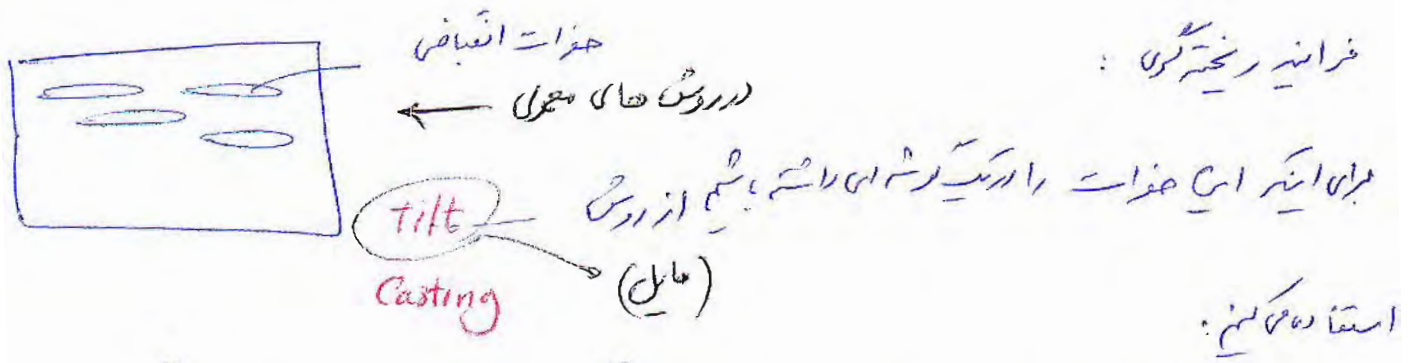 فرایند ریخته گری :
حفرات انقباضی
در روش های معمولی
برای اینکه این حفرات را در یک گوشه ای داشته باشیم از روش
Tilt
Casting
(مایل)
استفاده می کنیم :